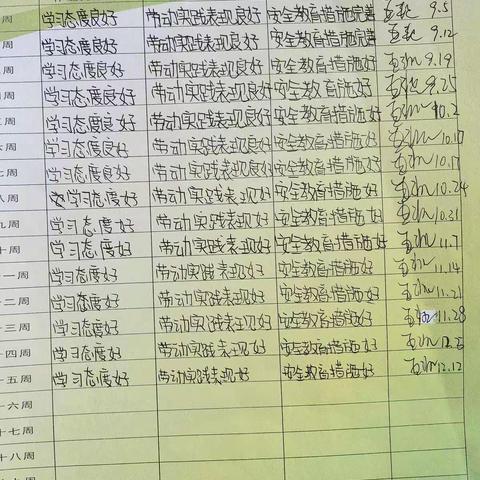 周 学习态度良好 劳动实践表现良好 安全教育措施完善 9.5
周 学习态度良好 劳动实践表现良好 安全教育措施完善 9.12
周 学习态度良好 劳动实践表现良好 安全教育措施好 9.19
周 学习态度良好 劳动实践表现良好 安全教育措施好 9.25
周 学习态度良好 劳动实践表现良好 安全教育措施好 10.2
六周 学习态度良好 劳动实践表现良好 安全教育措施好 10.10
七周 学习态度良好 劳动实践表现良好 安全教育措施好 10.17
八周 学习态度好 劳动实践表现好 安全教育措施好 10.24
九周 学习态度好 劳动实践表现好 安全教育措施好 10.31
十周 学习态度好 劳动实践表现好 安全教育措施好 11.7
十一周 学习态度好 劳动实践表现好 安全教育措施好 11.14
十二周 学习态度好 劳动实践表现好 安全教育措施好 11.21
十三周 学习态度好 劳动实践表现好 安全教育措施好 11.28
十四周 学习态度好 劳动实践表现好 安全教育措施好 12.5
十五周 学习态度好 劳动实践表现好 安全教育措施好 12.12
十六周
十七周
十八周